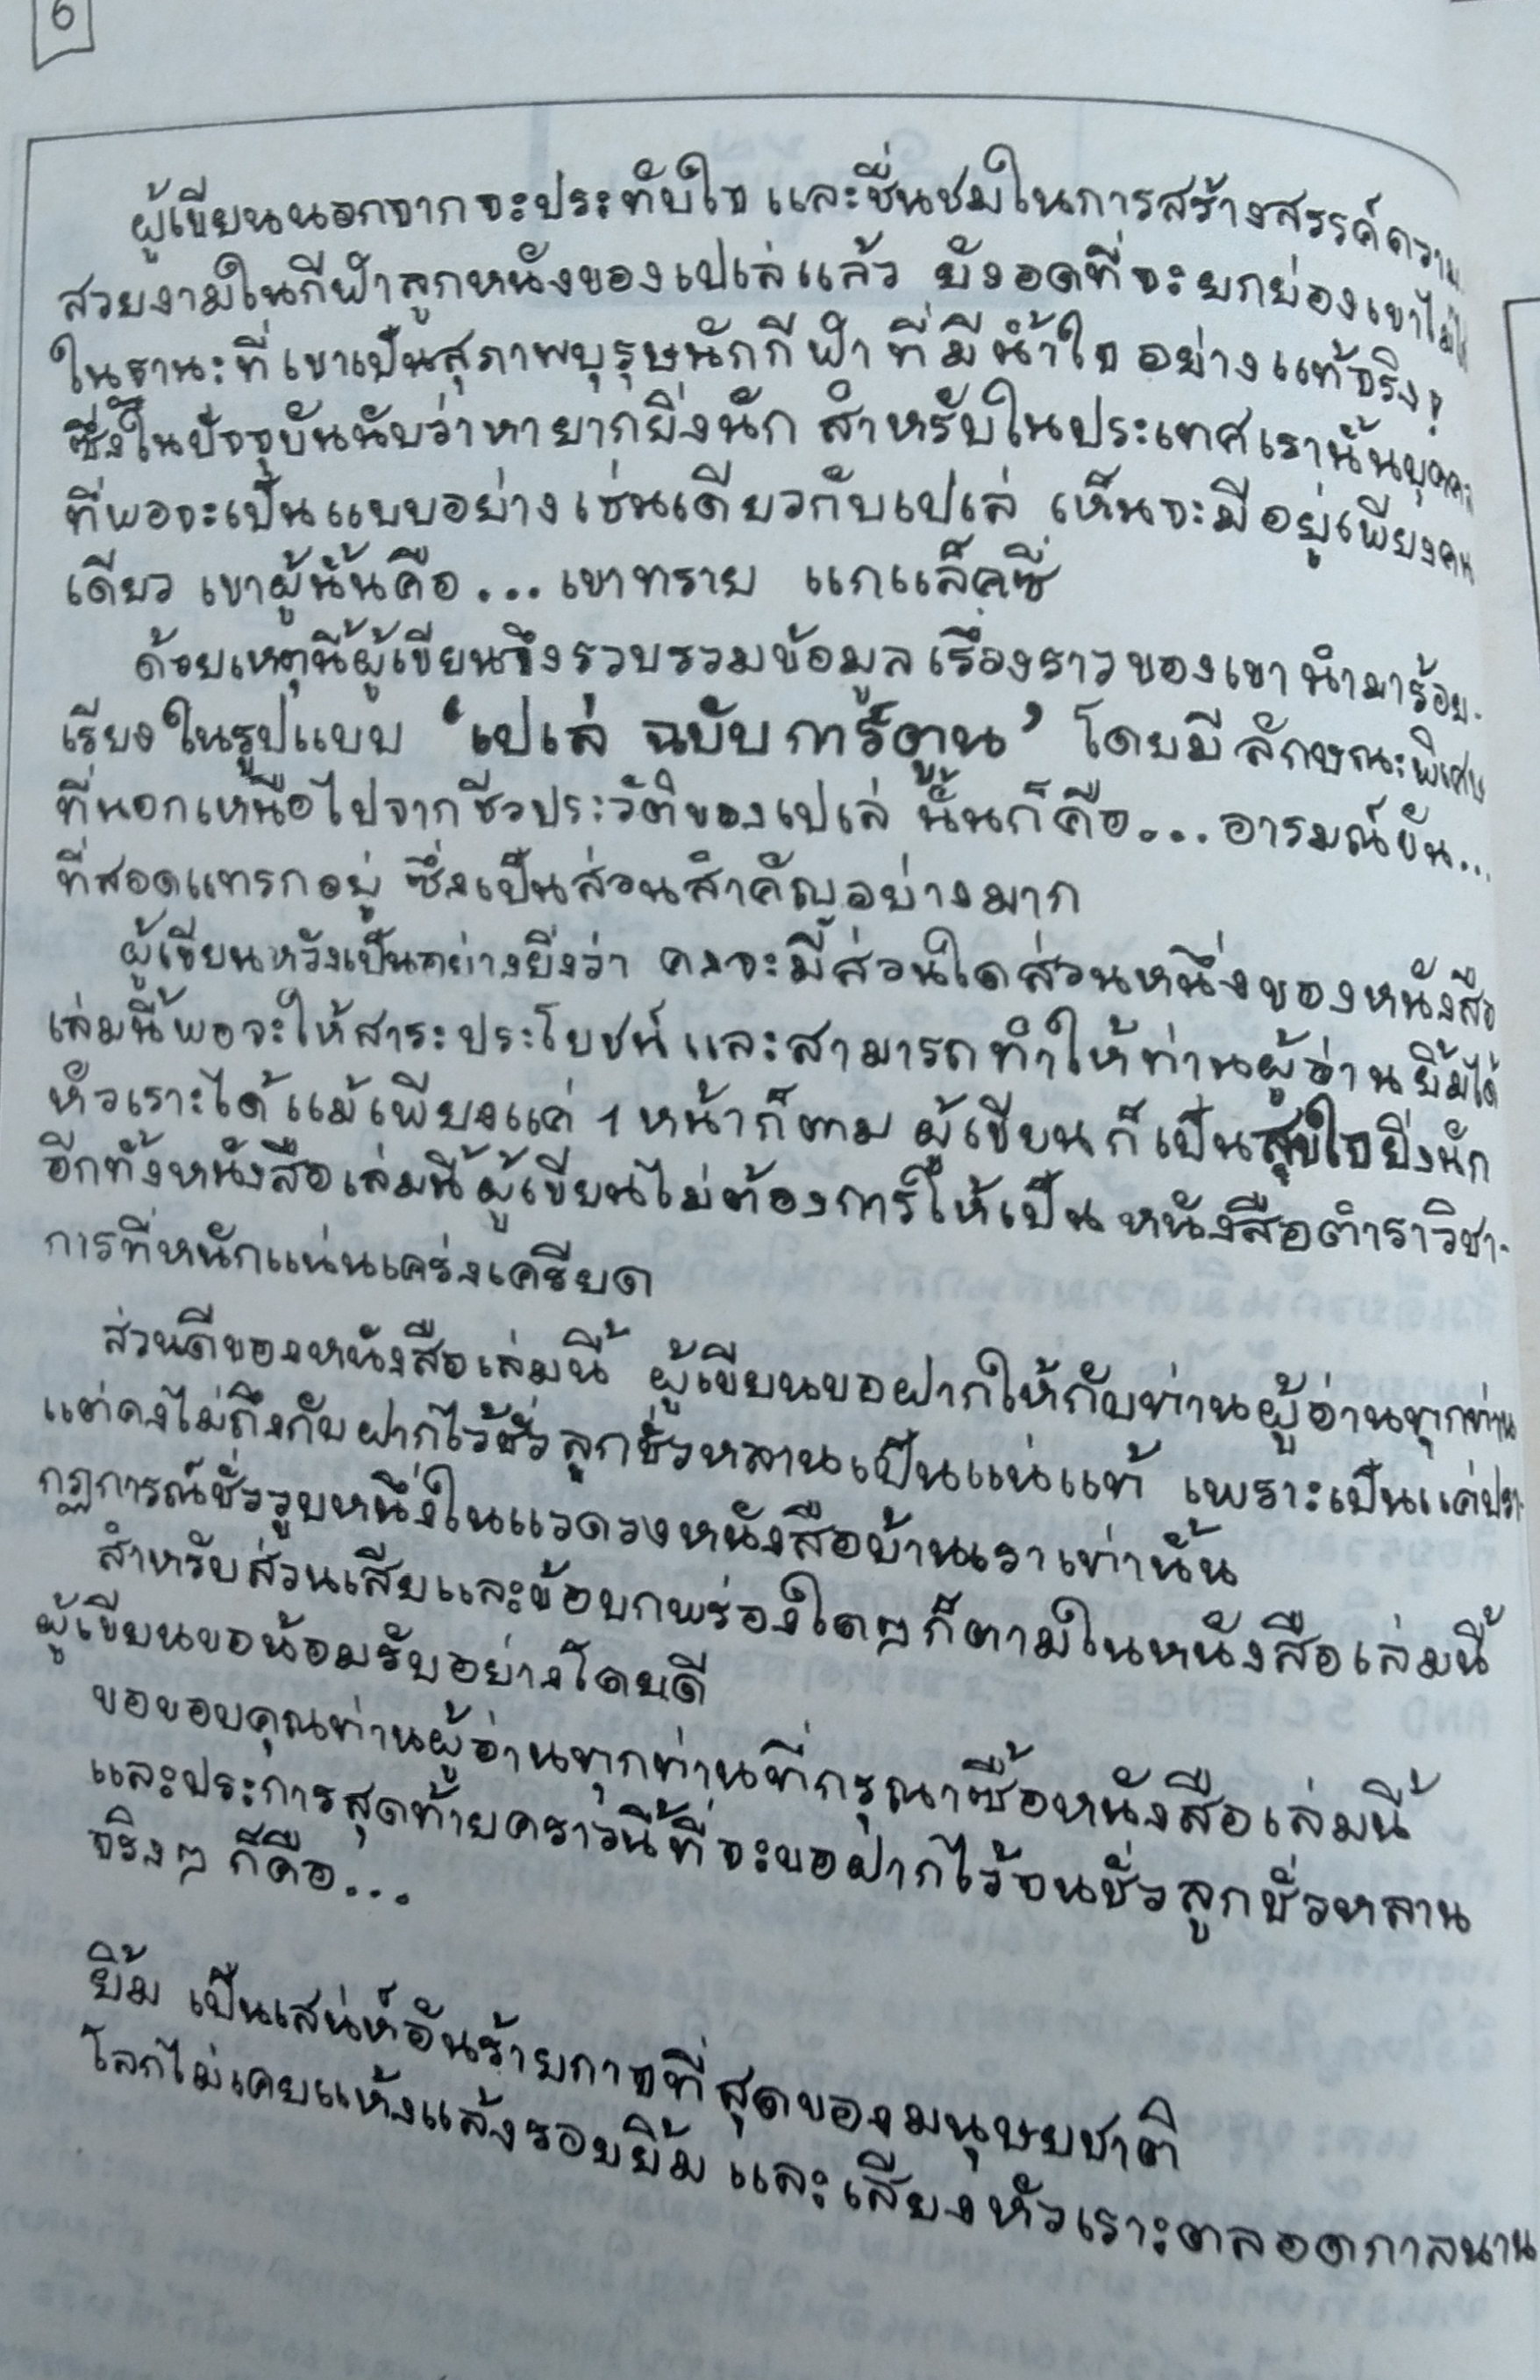 6
ผู้เขียนนอกจากจะประทับใจ และชื่นชมในการสร้างสรรค์ความ
สวยงามในกีฬาลูกหนังของเปเล่แล้ว ยังอดที่จะยกย่องเขาไม่ได้
ในฐานะที่เขาเป็นสุภาพบุรุษนักกีฬา ที่มีน้ำใจ อย่างแท้จริง
ซึ่งในปัจจุบันนับว่าหายากยิ่งนัก สำหรับในประเทศเรานั้นบุคคล
ที่พอจะเป็นแบบอย่าง เช่นเดียวกับเปเล่ เห็นจะมีอยู่เพียงคน
เดียว เขาผู้นั้นคือ... เขาทราย แกแล็คซี่
ด้วยเหตุนี้ผู้เขียนจึงรวบรวมข้อมูลเรื่องราวของเขา นำมาร้อย-
เรียงในรูปแบบ ‘เปเล่ ฉบับการ์ตูน’ โดยมีลักษณะพิเศษ
ที่นอกเหนือไปจากชีวประวัติของเปเล่ นั้นก็คือ... อารมณ์ขัน...
ที่สอดแทรกอยู่ ซึ่งเป็นส่วนสำคัญอย่างมาก
ผู้เขียนหวังเป็นอย่างยิ่งว่า คงจะมีส่วนใดส่วนหนึ่งของหนังสือ
เล่มนี้พอจะให้สาระประโยชน์ และสามารถทำให้ท่านผู้อ่านยิ้มได้
หัวเราะได้ แม้เพียงแค่ 1 หน้าก็ตาม ผู้เขียนก็เป็นสุขใจยิ่งนัก
อีกทั้งหนังสือเล่มนี้ผู้เขียนไม่ต้องการให้เป็น หนังสือตำราวิชา-
การที่หนักแน่นเคร่งเครียด
ส่วนดีของหนังสือเล่มนี้ ผู้เขียนขอฝากให้กับท่านผู้อ่านทุกท่าน
แต่คงไม่ถึงกับฝากไว้ชั่วลูกชั่วหลานเป็นแน่แท้ เพราะเป็นแค่ปรา-
กฏการณ์ชั่ววูบหนึ่งในแวดวงหนังสือบ้านเราเท่านั้น
สำหรับส่วนเสียและข้อบกพร่องใดๆก็ตามในหนังสือเล่มนี้
ผู้เขียนขอน้อมรับอย่างโดยดี
ขอขอบคุณท่านผู้อ่านทุกท่านที่กรุณาซื้อหนังสือเล่มนี้
และประการสุดท้ายคราวนี้ที่จะขอฝากไว้จนชั่วลูกชั่วหลาน
จริงๆ ก็คือ...
ยิ้ม เป็นเสน่ห์อันร้ายกาจที่สุดของมนุษยชาติ
โลกไม่เคยแห้งแล้งรอยยิ้ม และเสียงหัวเราะตลอดกาลนาน